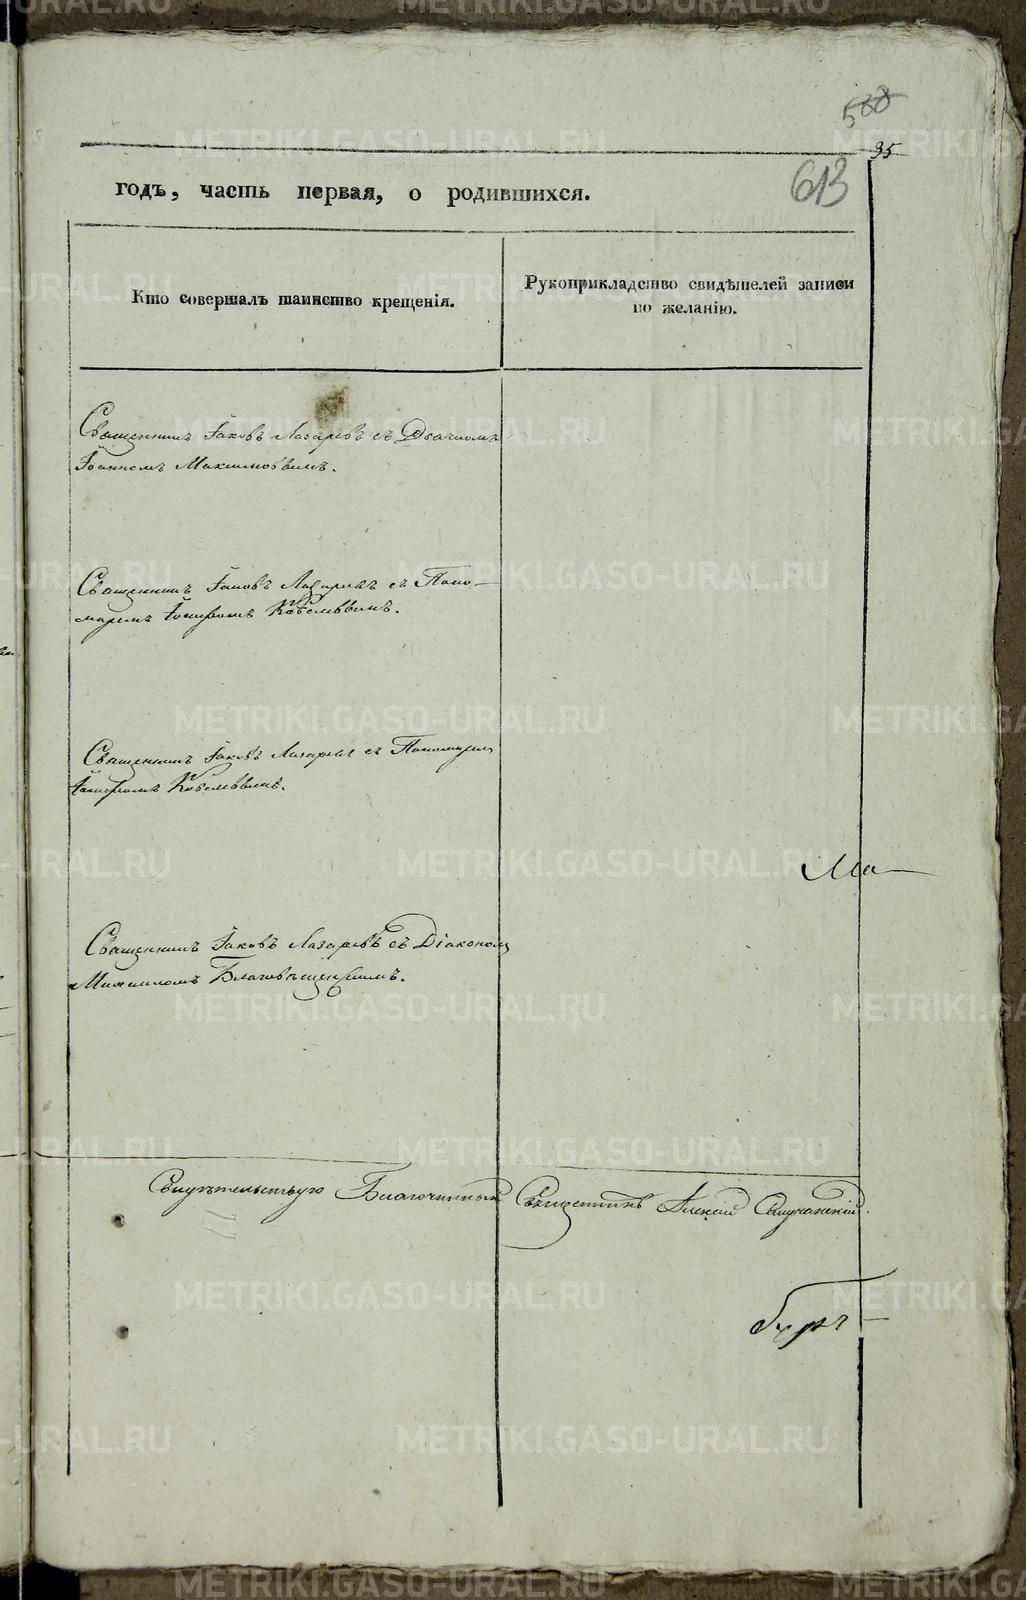 588
35
613
годъ, часть первая, о родившихся.
Кто совершалъ таинство крещенія.
Рукоприкладство свидѣтелей записи
по желанію.
Священникъ Іаковъ Лазаревъ съ Дьячкомъ
Іоанномъ Максимовымъ.
Священникъ Іаковъ Лазаревъ съ Поно-
маремъ Іосифомъ
Священникъ Іаковъ Лазаревъ съ Пономаремъ
Іосифомъ
Ма
Священникъ Іаковъ Лазаревъ съ Діакономъ
Михаиломъ Благовѣщенскимъ.
Свидѣтельствую Благочинный Священникъ Алексій
METRIKI.GASO-URAL.RU